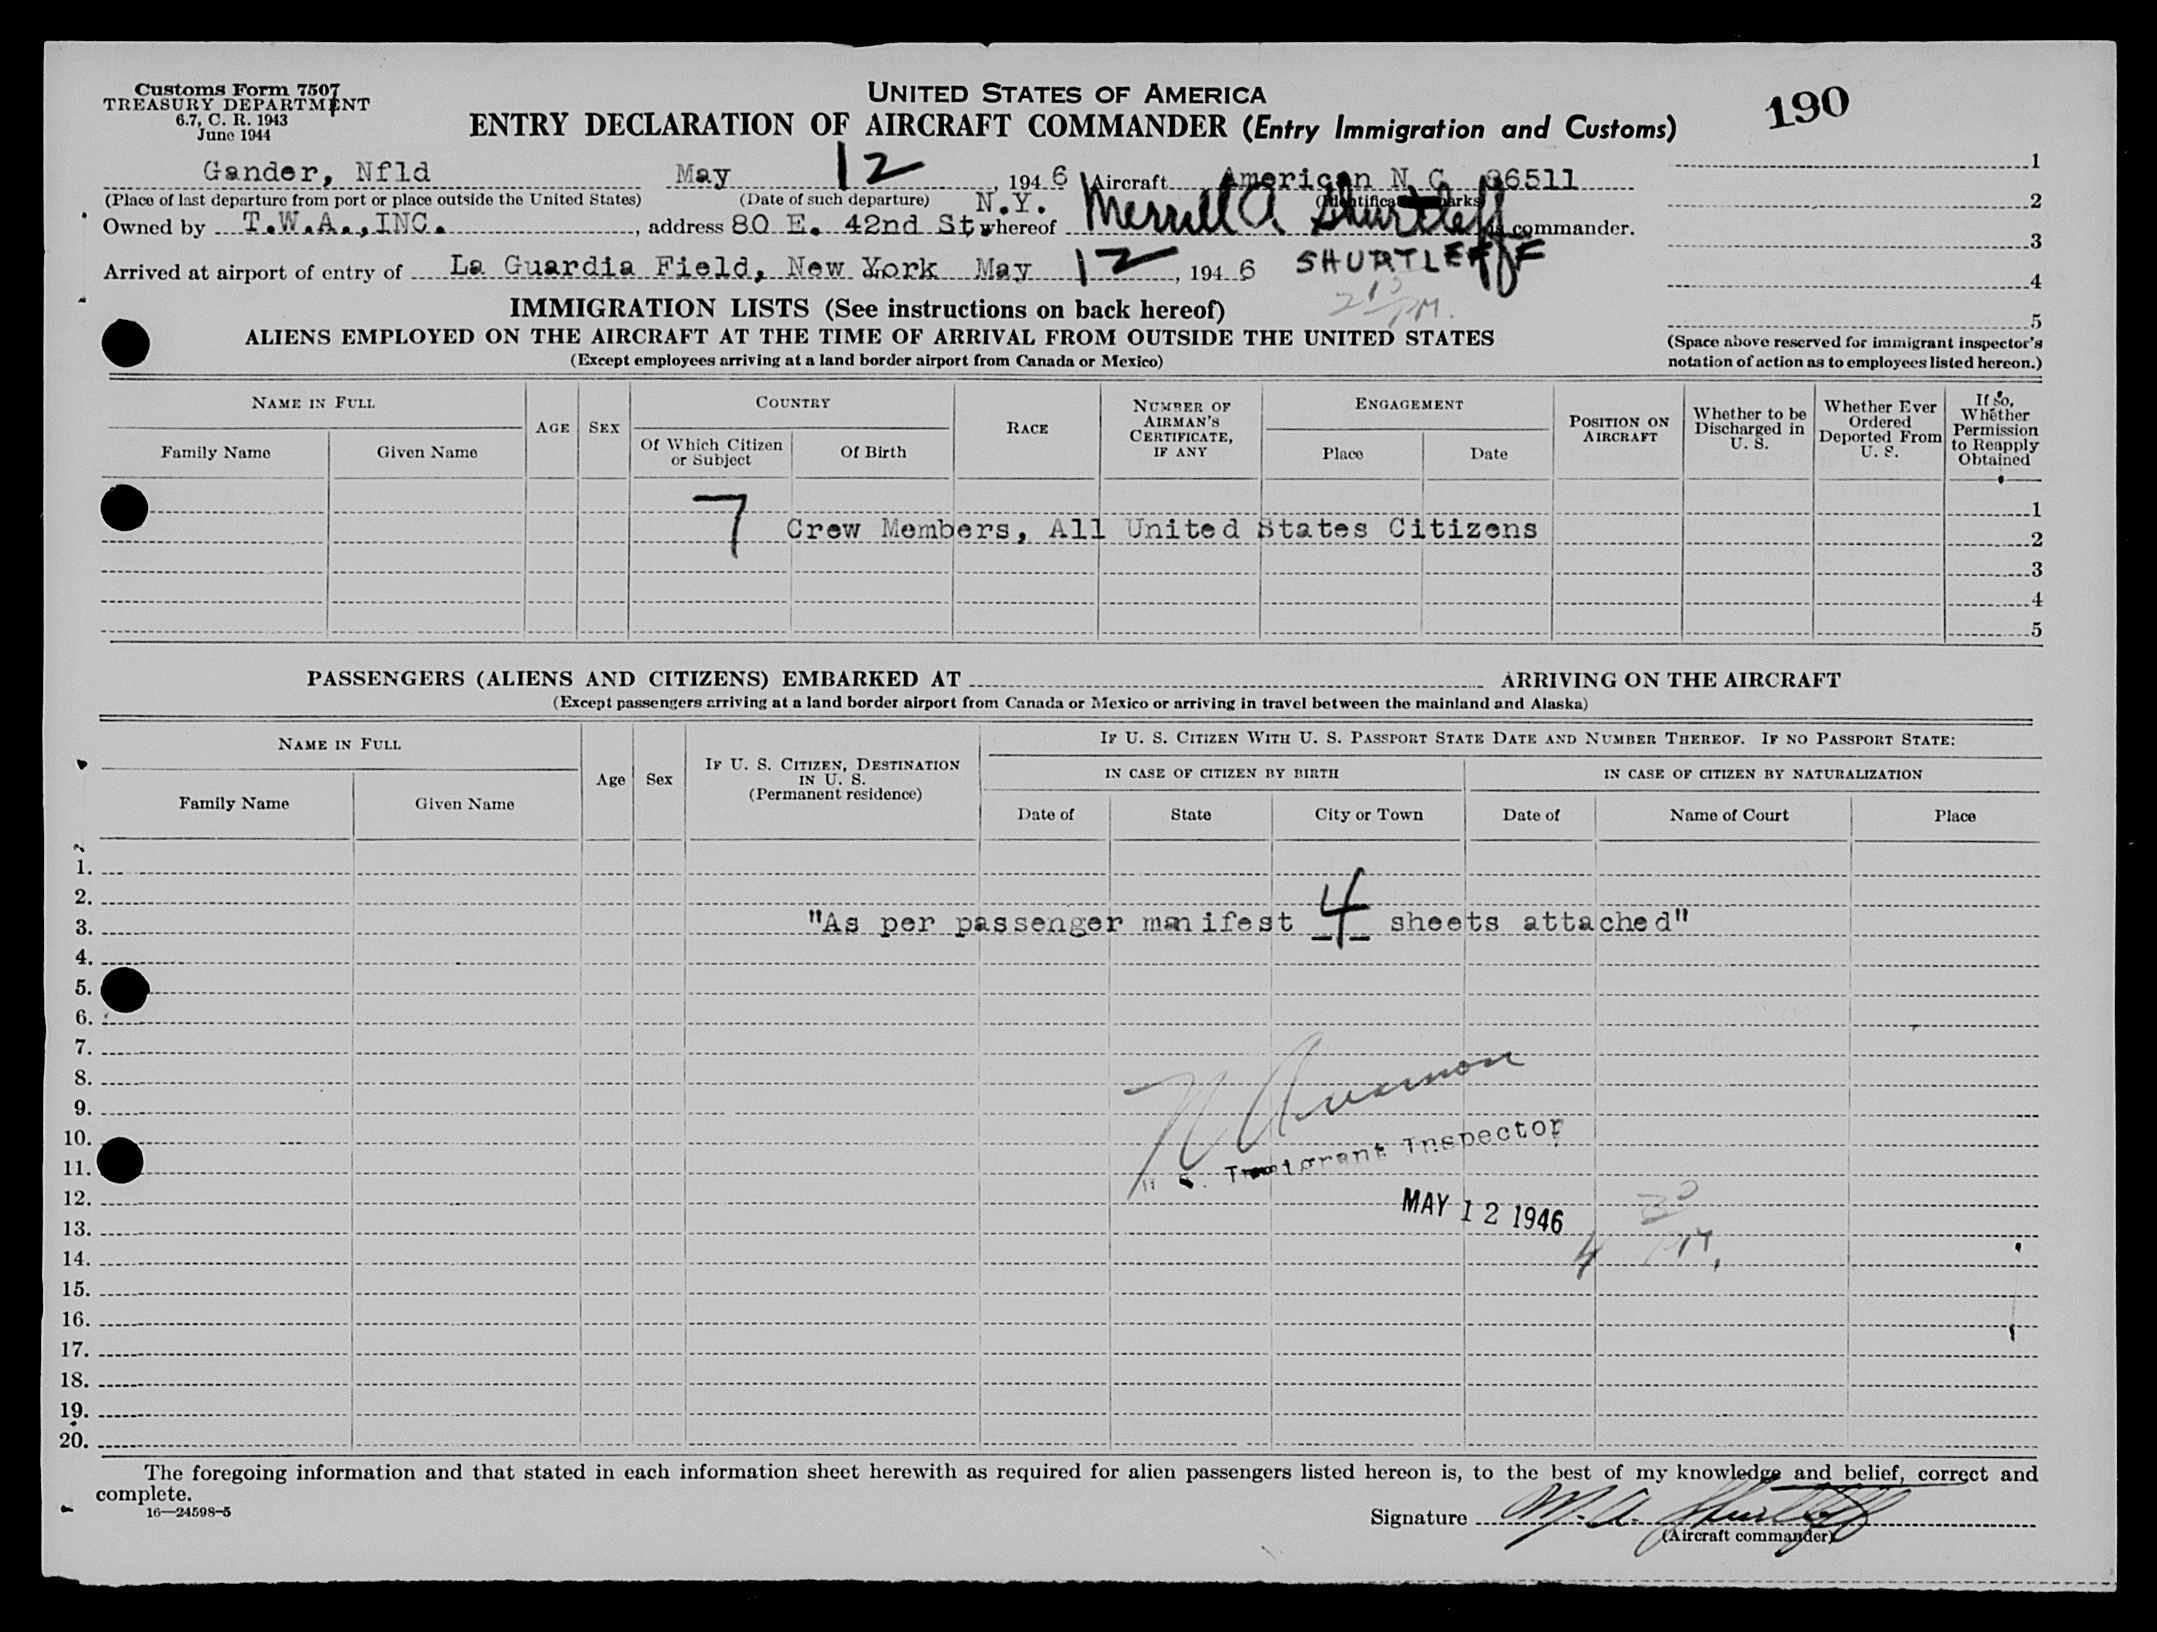 Customs Form 7507
TREASURY DEPARTMENT
6.7, C. R. 1943
June 1944
UNITED STATES OF AMERICA
ENTRY DECLARATION OF AIRCRAFT COMMANDER (Entry Immigration and Customs)
190
Gander, Nfld May 12, 1946 Aircraft American N C 86511
(Place of last departure from port or place outside the United States) (Date of such departure) (Identification marks)
N.Y.
Owned by T.W.A., INC., address 80 E. 42nd St, whereof Merrill A Shurtleff is commander.
Arrived at airport of entry of La Guardia Field, New York May 12, 1946 SHURTLEFF
1
2
3
4
5
(Space above reserved for immigrant inspector's
notation of action as to employees listed hereon.)
IMMIGRATION LISTS (See instructions on back hereof)
ALIENS EMPLOYED ON THE AIRCRAFT AT THE TIME OF ARRIVAL FROM OUTSIDE THE UNITED STATES
(Except employees arriving at a land border airport from Canada or Mexico)
NAME IN FULL
Family Name Given Name
AGE SEX
COUNTRY
Of Which Citizen
or Subject
Of Birth
RACE
NUMBER OF
AIRMAN'S
CERTIFICATE,
IF ANY
ENGAGEMENT
Place Date
POSITION ON
AIRCRAFT
Whether to be
Discharged in
U. S.
Whether Ever
Ordered
Deported From
U. S.
If So,
Whether
Permission
to Reapply
Obtained
1
7 Crew Members, All United States Citizens
2
3
4
5
PASSENGERS (ALIENS AND CITIZENS) EMBARKED AT ARRIVING ON THE AIRCRAFT
(Except passengers arriving at a land border airport from Canada or Mexico or arriving in travel between the mainland and Alaska)
NAME IN FULL
Family Name Given Name
Age Sex
IF U. S. CITIZEN, DESTINATION
IN U. S.
(Permanent residence)
IF U. S. CITIZEN WITH U. S. PASSPORT STATE DATE AND NUMBER THEREOF. IF NO PASSPORT STATE:
IN CASE OF CITIZEN BY BIRTH IN CASE OF CITIZEN BY NATURALIZATION
Date of State City or Town Date of Name of Court Place
1.
2.
3. "As per passenger manifest 4 sheets attached"
4.
5.
6.
7.
8.
9.
10.
11.
U. S. Immigrant Inspector
12.
MAY 12 1946
13.
14.
15.
16.
17.
18.
19.
20.
The foregoing information and that stated in each information sheet herewith as required for alien passengers listed hereon is, to the best of my knowledge and belief, correct and
complete.
16—24598-5
Signature M. A. Shurtleff
(Aircraft commander)